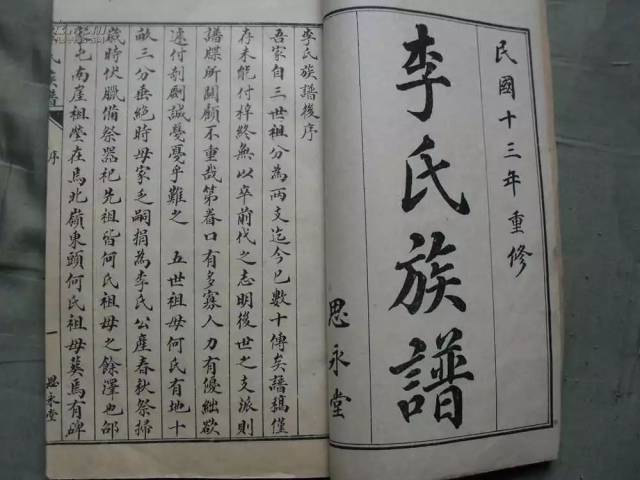 民國十三年重修
李氏族譜
思永堂
李氏族譜後序
吾家自三世祖分為兩支迄今已數十傳矣譜稿僅
存未能付梓終無以卒前代之志明後世之支派則
譜牒所關顧不重哉第眷口有多寡人力有優絀欲
速付剞劂誠戞戞乎難之 五世祖母何氏有地十
畝三分垂絕時母家乏嗣捐為李氏公產春秋祭掃
歲時伏臘備祭器祀先祖皆何氏祖母之餘澤也邵
家屯南崖祖塋在焉北嶺東頭何氏祖母葬焉有碑
氏族譜
序
一
思永堂